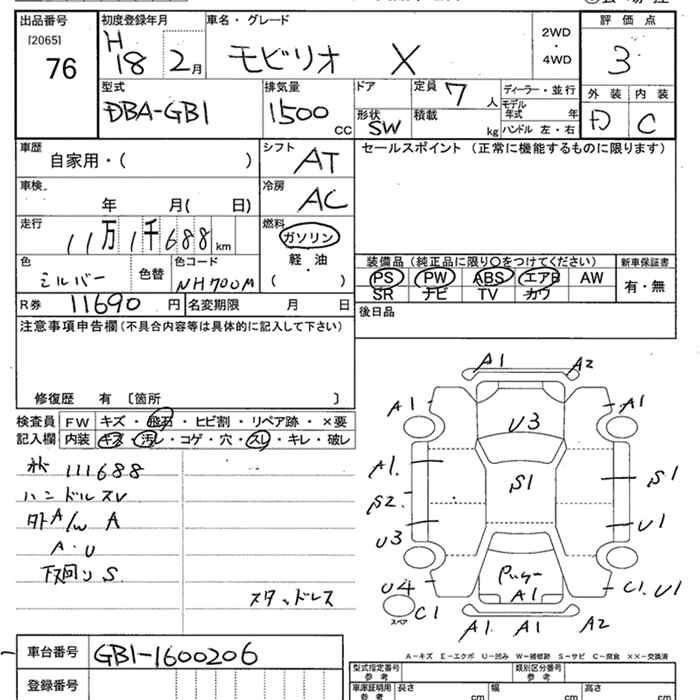 出品番号 初度登録年月 車名・グレード 評価点
[2065] 76 H18 2月 モビリオ X 2WD・4WD 3
型式 排気量 ドア 定員 7人 ディーラー・並行 外装 内装
DBA-GB1 1500cc 形状 SW 積載 kg モデル年式 年 ハンドル 左・右 D C
車歴 シフト セールスポイント (正常に機能するものに限ります)
自家用・( ) AT
車検 年 月( 日) 冷房 AC
走行 11万1千688km 燃料 ガソリン
軽油
・
( )
色 シルバー 色替 色コード NH700M
装備品 (純正品に限り○をつけてください) 新車保証書
PS PW ABS エアB AW 有・無
SR ナビ TV カワ
R券 11690円 名変期限 月 日 後日品
注意事項申告欄(不具合内容等は具体的に記入して下さい)
修復歴 有 〔箇所 〕
検査員 FW キズ・飛石・ヒビ割・リペア跡・×要
記入欄 内装 キズ・汚レ・コゲ・穴・スレ・キレ・破レ
111688
ハンドルスレ
外A/W A
A・U
下廻りS
スタッドレス
A1 A2
A1 U3 A1
A1. S1 S1
S2.
U3 U1
U4 A1 C1. U1
スペア C1 A1. A1 A2
A-キズ E-エクボ U-凹み W-補修跡 S-サビ C-腐食 ××-交換済
車台番号 GB1-1600206
登録番号
型式指定番号 参考 類別区分番号 参考
車庫証明用 参考 長さ cm 幅 cm 高さ cm